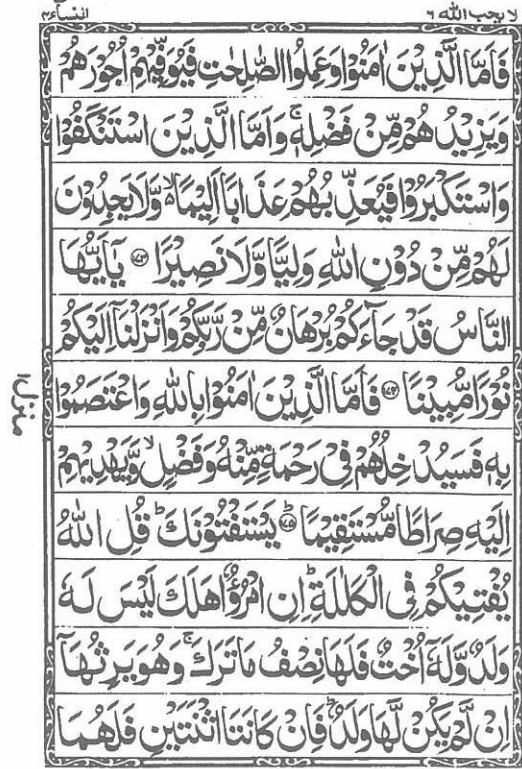 لا يحب الله ٦
النساء ٤
فَاَمَّا الَّذِيْنَ اٰمَنُوْا وَعَمِلُوا الصّٰلِحٰتِ فَيُوَفِّيْهِمْ اُجُوْرَهُمْ
وَيَزِيْدُهُمْ مِّنْ فَضْلِهٖ ۚ وَاَمَّا الَّذِيْنَ اسْتَنْكَفُوْا
وَاسْتَكْبَرُوْا فَيُعَذِّبُهُمْ عَذَابًا اَلِيْمًا ۙ وَّلَا يَجِدُوْنَ
لَهُمْ مِّنْ دُوْنِ اللّٰهِ وَلِيًّا وَّلَا نَصِيْرًا ﴿۱۷۳﴾ يٰۤاَيُّهَا
النَّاسُ قَدْ جَآءَكُمْ بُرْهَانٌ مِّنْ رَّبِّكُمْ وَاَنْزَلْنَاۤ اِلَيْكُمْ
نُوْرًا مُّبِيْنًا ﴿۱۷۴﴾ فَاَمَّا الَّذِيْنَ اٰمَنُوْا بِاللّٰهِ وَاعْتَصَمُوْا
بِهٖ فَسَيُدْخِلُهُمْ فِيْ رَحْمَةٍ مِّنْهُ وَفَضْلٍ ۙ وَّيَهْدِيْهِمْ
اِلَيْهِ صِرَاطًا مُّسْتَقِيْمًا ﴿۱۷۵﴾ يَسْتَفْتُوْنَكَ ؕ قُلِ اللّٰهُ
يُفْتِيْكُمْ فِي الْكَلٰلَةِ ؕ اِنِ امْرُؤٌا هَلَكَ لَيْسَ لَهٗ
وَلَدٌ وَّلَهٗۤ اُخْتٌ فَلَهَا نِصْفُ مَا تَرَكَ ۚ وَهُوَ يَرِثُهَاۤ
اِنْ لَّمْ يَكُنْ لَّهَا وَلَدٌ ؕ فَاِنْ كَانَتَا اثْنَتَيْنِ فَلَهُمَا
منزل ۱